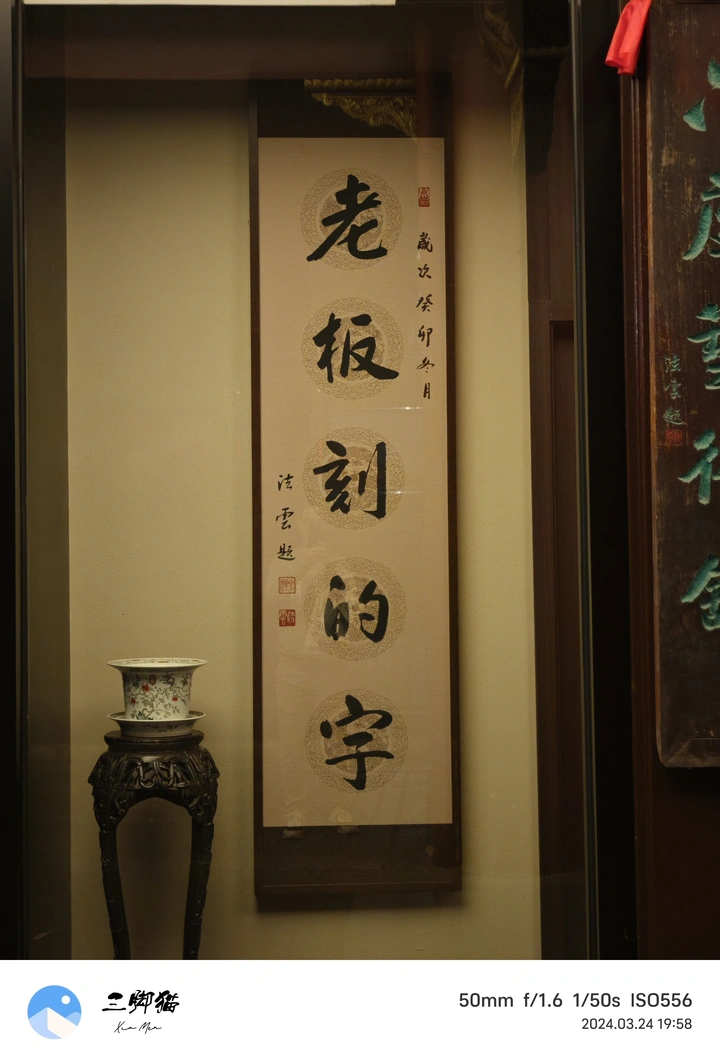 老板刻的字
歲次癸卯冬月
法雲題
法雲題
三脚猫
50mm f/1.6 1/50s ISO556
2024.03.24 19:58